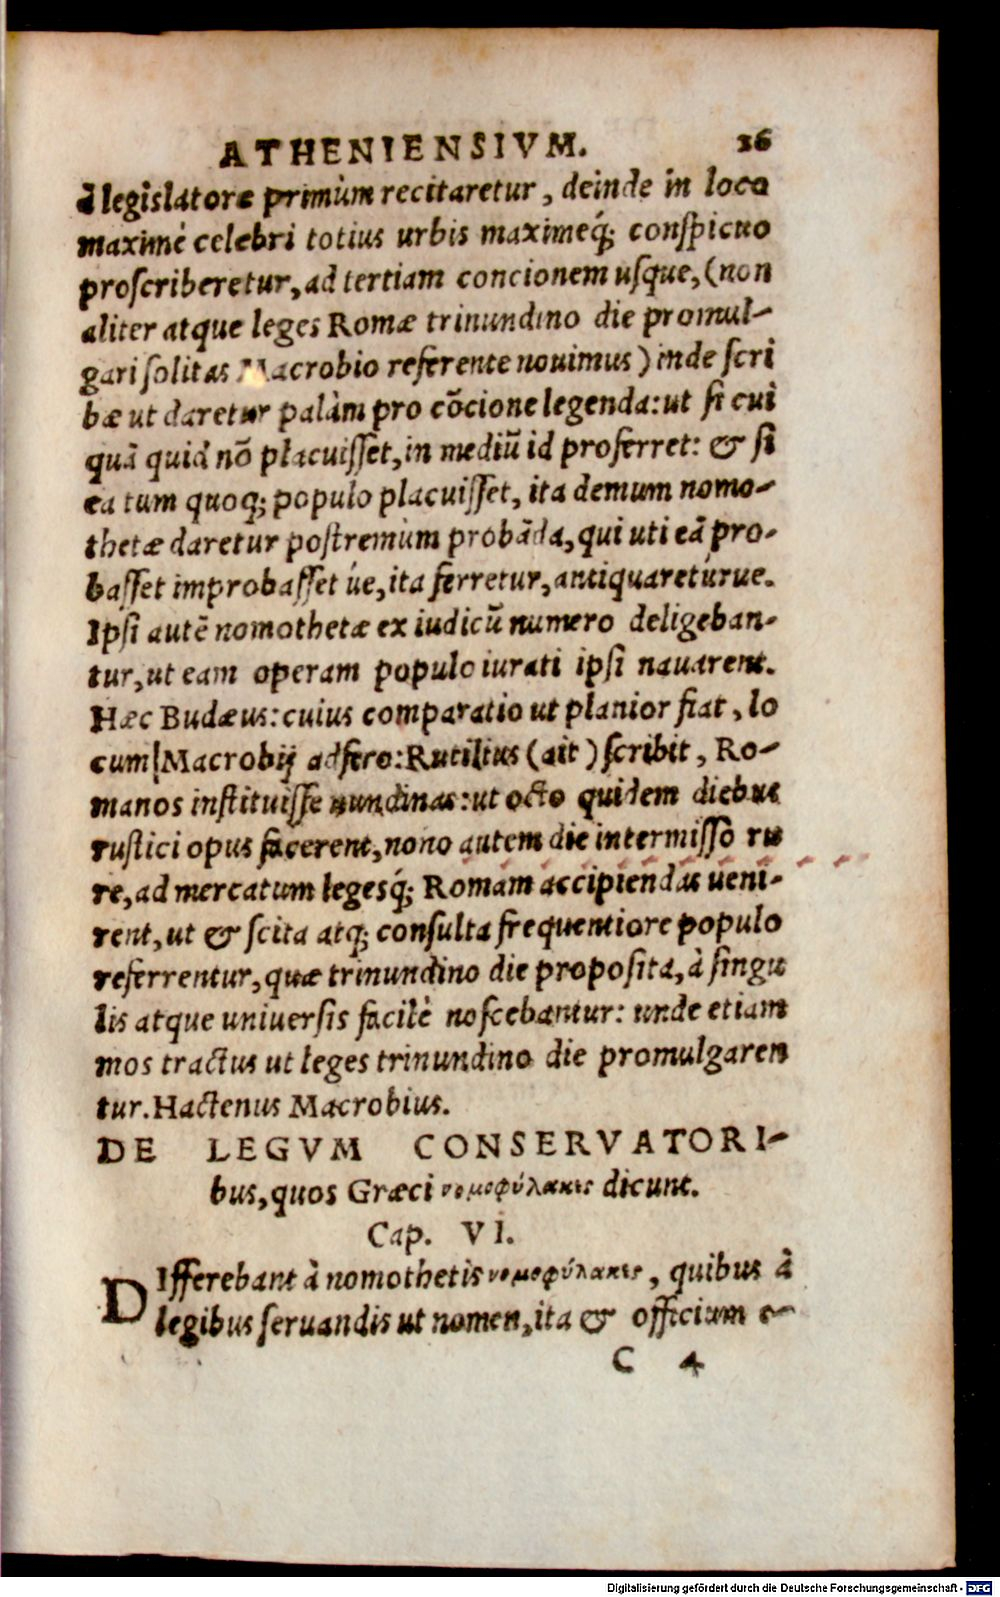 ATHENIENSIVM. 26
à legislatore primùm recitaretur, deinde in loco
maximè celebri totius urbis maximeq́; conspicuo
proscriberetur, ad tertiam concionem usque, (non
aliter atque leges Romæ trinundino die promul-
gari solitas Macrobio referente nouimus) inde scri
bæ ut daretur palàm pro cõcione legenda: ut si cui
quã quid nõ placuisset, in mediũ id proferret: & si
ea tum quoq; populo placuisset, ita demum nomo-
thetæ daretur postremùm probãda, qui uti eã pro-
basset improbasset úe, ita ferretur, antiquareturue.
Ipsi autẽ nomothetæ ex iudicũ numero deligeban-
tur, ut eam operam populo iurati ipsi nauarent.
Hæc Budæus: cuius comparatio ut planior fiat, lo
cum Macrobij adfero: Rutilius (ait) scribit, Ro-
manos instituisse nundinas: ut octo quidem diebus
rustici opus facerent, nono autem die intermisso ru
re, ad mercatum legesq́; Romam accipiendas ueni-
rent, ut & scita atq; consulta frequentiore populo
referrentur, quæ trinundino die proposita, à singu
lis atque uniuersis facilè noscebantur: unde etiam
mos tractus ut leges trinundino die promulgaren
tur. Hactenus Macrobius.
DE LEGVM CONSERVATORI-
bus, quos Græci νομοφύλακες dicunt.
Cap. VI.
DIfferebant à nomothetis νομοφύλακες, quibus à
legibus seruandis ut nomen, ita & officium e-
C 4
Digitalisierung gefördert durch die Deutsche Forschungsgemeinschaft - DFG